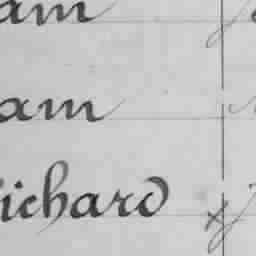 am
am
ichard